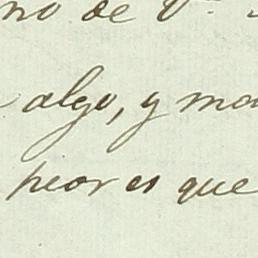 no de V
algo, y ma
peor es que